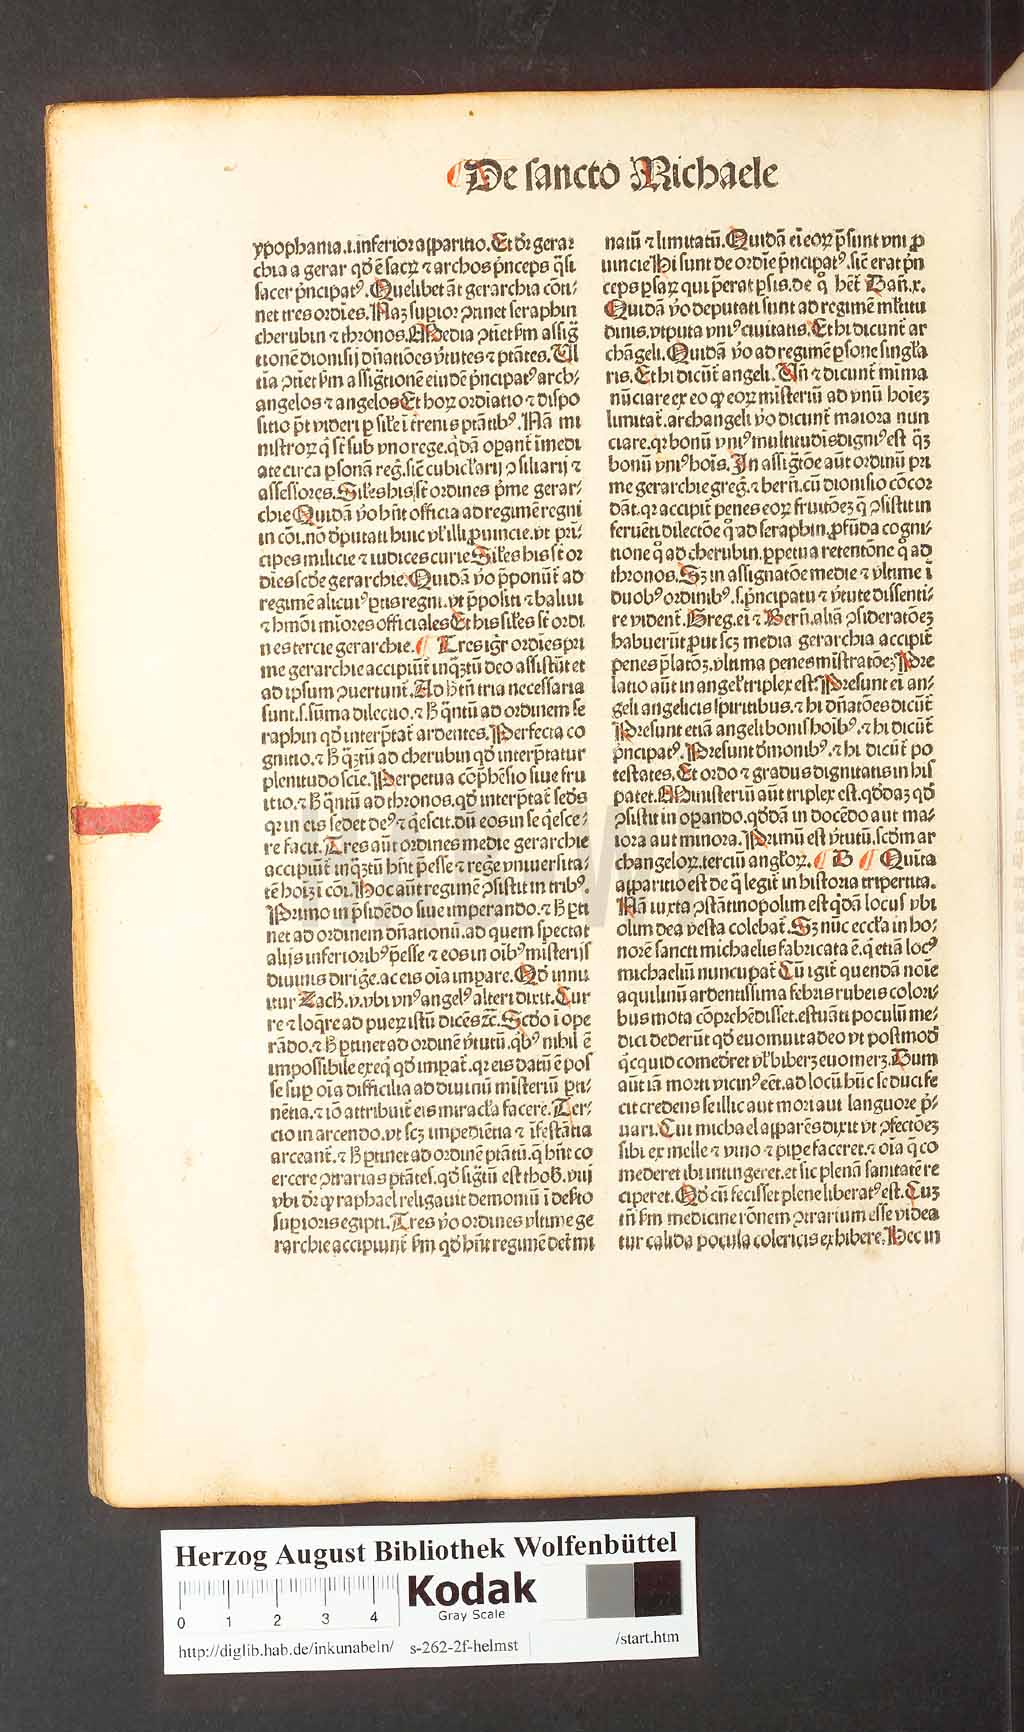 De sancto Michaele
ypophania.i.inferior apparitio. Et dr̄ gerar
chia a gerar qd̓ ē sacrꝝ ⁊ archos p̄nceps q̄si
sacer p̄ncipatꝰ. Quelibet āt gerarchia cōti-
net tres ordīes. Naꝫ supior ꝯtinet seraphin
cherubin ⁊ thronos. Media ꝯtīet ẜm assig̃
tionē dionisij dn̄atiōes v̓tutes ⁊ ptātes. Vl
tia ꝯtīet ẜm assig̃tionē eiusdē p̄ncipatꝰ arch-
angelos ⁊ angelos Et hoꝝ ordīatio ⁊ dispo
sitio p̄t videri ꝑ sil̓e ī trenis ptātibꝰ. Nā mi
nistroꝝ q̄ st̄ sub vno rege. q̇dā opant̄ īmedi
ate circa ꝑsonā reg̃. sic̄ cubicl̓arij ꝯsiliarij ⁊
assessores. Sil̓es his st̄ ordines p̄me gerar-
chie Quidā v̓o hn̄t officia ad regimē regni
in cōi. no d̓putati huic vl̓ illi ꝓuincie. vt prī-
cipes milicie ⁊ iudices curie Sil̓es his st̄ or
dīes scd̓e gerarchie. Quidā v̓o p̄ponūt̄ ad
regimē alicuiꝰ ꝑtis regni. vt p̄positi ⁊ baliui
⁊ hmōi mīores officiales Et his sil̓es st̄ ordi
nes tercie gerarchie. ¶ Tres igr̄ ordīes pri
me gerarchie accipiūt̄ inq̄ꝫtū deo assistūt et
ad ipsum ꝯuertunt̄. Ad h̓ tn̄ tria necessaria
sunt. s. sūma dilectio. ⁊ h̓ q̄ntū ad ordinem se
raphin qd̓ interp̄tat̄ ardentes. Perfecta co
gnitio. ⁊ h̓ q̄ꝫtū ad cherubin qd̓ interp̄tatur
plenitudo scīe. Perpetua cōp̄hēsio siue fru
itio. ⁊ h̓ q̄ntū ad thronos. qd̓ interp̄tat̄ sed̓s
qr in eis sedet de9 ⁊ q̇escit. dū eos in se q̇esce-
re facit. Tres aūt ordines medie gerarchie
accipiūt̄ inq̄ꝫtū hn̄t p̄esse ⁊ reg̓e vniuersita-
tē hoīꝫ ī cōi. Hoc aūt regimē ꝯsistit in tribꝰ.
Primo in p̄sidēdo siue imperando. ⁊ h̓ ꝑti
net ad ordinem dn̄ationū. ad quem spectat
alijs inferioribꝰ p̄esse ⁊ eos in oībꝰ misterijs
diuinis dirig̓e. ac eis oīa impare. Qd̓ innu
itur Zach̓. v. vbi vnꝰ angelꝰ alteri dixit. Cur
re ⁊ loq̄re ad pueꝝ istū dicēs ⁊c̄. Scd̓o ī ope
rādo. ⁊ h̓ ꝑtinet ad ordinē v̓tutū. qbꝰ nihil ē
impossibile exeq̇ qd̓ impat̄. qr eis datū ē pos
se sup oīa difficilia ad diuinū misteriū ꝑti-
nētia. ⁊ iō attribuit̄ eis miracl̓a facere. Ter-
cio in arcendo. vt scꝫ impediētia ⁊ īfestātia
arceant̄. ⁊ h̓ ꝑtinet ad ordinē ptātū. q̄ hn̄t co
ercere ꝯtrarias ptātes. qd̓ sig̃tū est thob̓. viij
vbi dr̄ ꝙ raphael religauit demoniū ī desͬto
supioris egipti. Tres v̓o ordines vltime ge
rarchie accipiunt̄ ẜm qd̓ hn̄t regimē det̓mi
natū ⁊ limitatū. Quidā ei eoꝝ p̄sunt vni ꝓ
uincie Hi sunt de ordīe p̄ncipatꝰ. sic̄ erat prī
ceps psaꝝ qui p̄erat psis. de q̇ het̄ Dan̄. x.
Quidā v̓o deputati sunt ad regimē ml̓titu
dinis. vtputa vniꝰ ciuitatis. Et hi dicunt̄ ar
chāgeli. Quidā v̓o ad regimē ꝑsone singl̓a
ris. Et hi dicūt̄ angeli. Vn̄ ⁊ dicunt̄ mīma
nūciare ex eo ꝙ eoꝝ mīsteriū ad vnū hoīeꝫ
limitat̄. archangeli v̓o dicunt̄ maiora nun
ciare. qr bonū vniꝰ multitudīs digniꝰ est q̄ꝫ
bonū vniꝰ hoīs. In assig̃tōe aūt ordinū pri
me gerarchie greg̃. ⁊ bern̄. cū dionisio cōcor
dāt. qr accipit̄ penes eoꝝ fruitōeꝫ q̄ ꝯsistit in
feruēti dilectōe q̄ꝫ ad seraphin. ꝓfūda cogni-
tione q̄ ad cherubin. ꝑpetua retentōne q̄ ad
thronos. Sꝫ in assignatōe medie ⁊ vltime ī
duobꝰ ordinibꝰ. s. p̄ncipatu ⁊ v̓tute dissenti-
re vident̄. Greg. ei ⁊ Bern̄. aliā ꝯsideratōeꝫ
habuerūt ꝓut scꝫ media gerarchia accipit̄
penes p̄latōꝫ. vltima penes mīstratōeꝫ Pre
latio aūt in angel̓ triplex est. Presunt ei an-
geli angelicis spiritibus. ⁊ hi dn̄atōes dicūt̄
Presunt etiā angeli bonis hoībꝰ. ⁊ hi dicūt̄
p̄ncipatꝰ. Presunt d̓monibꝰ. ⁊ hi dicūt̄ po
testates. Et ordo ⁊ gradus dignitatis in his
patet. Ministeriū aūt triplex est. qd̓daꝫ qd̓
ꝯsistit in opando. qd̓dā in docēdo aut ma-
iora aut minora. Primū est v̓tutū. scdm ar
changeloꝝ. terciū angl̓oꝝ. ¶ B ¶ Quīta
apparitio est de q̄ legit̄ in historia tripertita.
Nā iuxta ꝯstātinopolim est q̇dā locus vbi
olim dea vesta colebat̄. Sꝫ nūc eccl̓a in ho-
norē sancti michaelis fabricata ē. q̇ etiā locꝰ
michaeliū nuncupat̄ Cū igit̄ quendā noīe
aquilinū ardentissima febris rubeis colori-
bus mota cōprehēdisset. estuāti poculū me-
dici dederūt qd̓ euomuit adeo vt postmod̓
q̇cquid comed̓ret vl̓ biberꝫ euomerꝫ. Dum
aūt iā morti vicinꝰ eēt. ad locū hūc se duci fe
cit credens se illic aut mori aut languore p̓-
uari. Cui michael apparēs dixit vt ꝯfectōeꝫ
sibi ex melle ⁊ vino ⁊ pipe faceret. ⁊ oīa q̄ co
mederet ibi intingeret. et sic plenā sanitatē re
ciperet. Qd̓ cū fecisset plene liberatꝰ est. Cuꝫ
tn̄ ẜm medicine rōnem ꝯtrarium esse videa
tur calida pocula colericis exhibere. Hec in
Herzog August Bibliothek Wolfenbüttel
0 1 2 3 4
Kodak
Gray Scale
http://diglib.hab.de/inkunabeln/ s-262-2f-helmst /start.htm